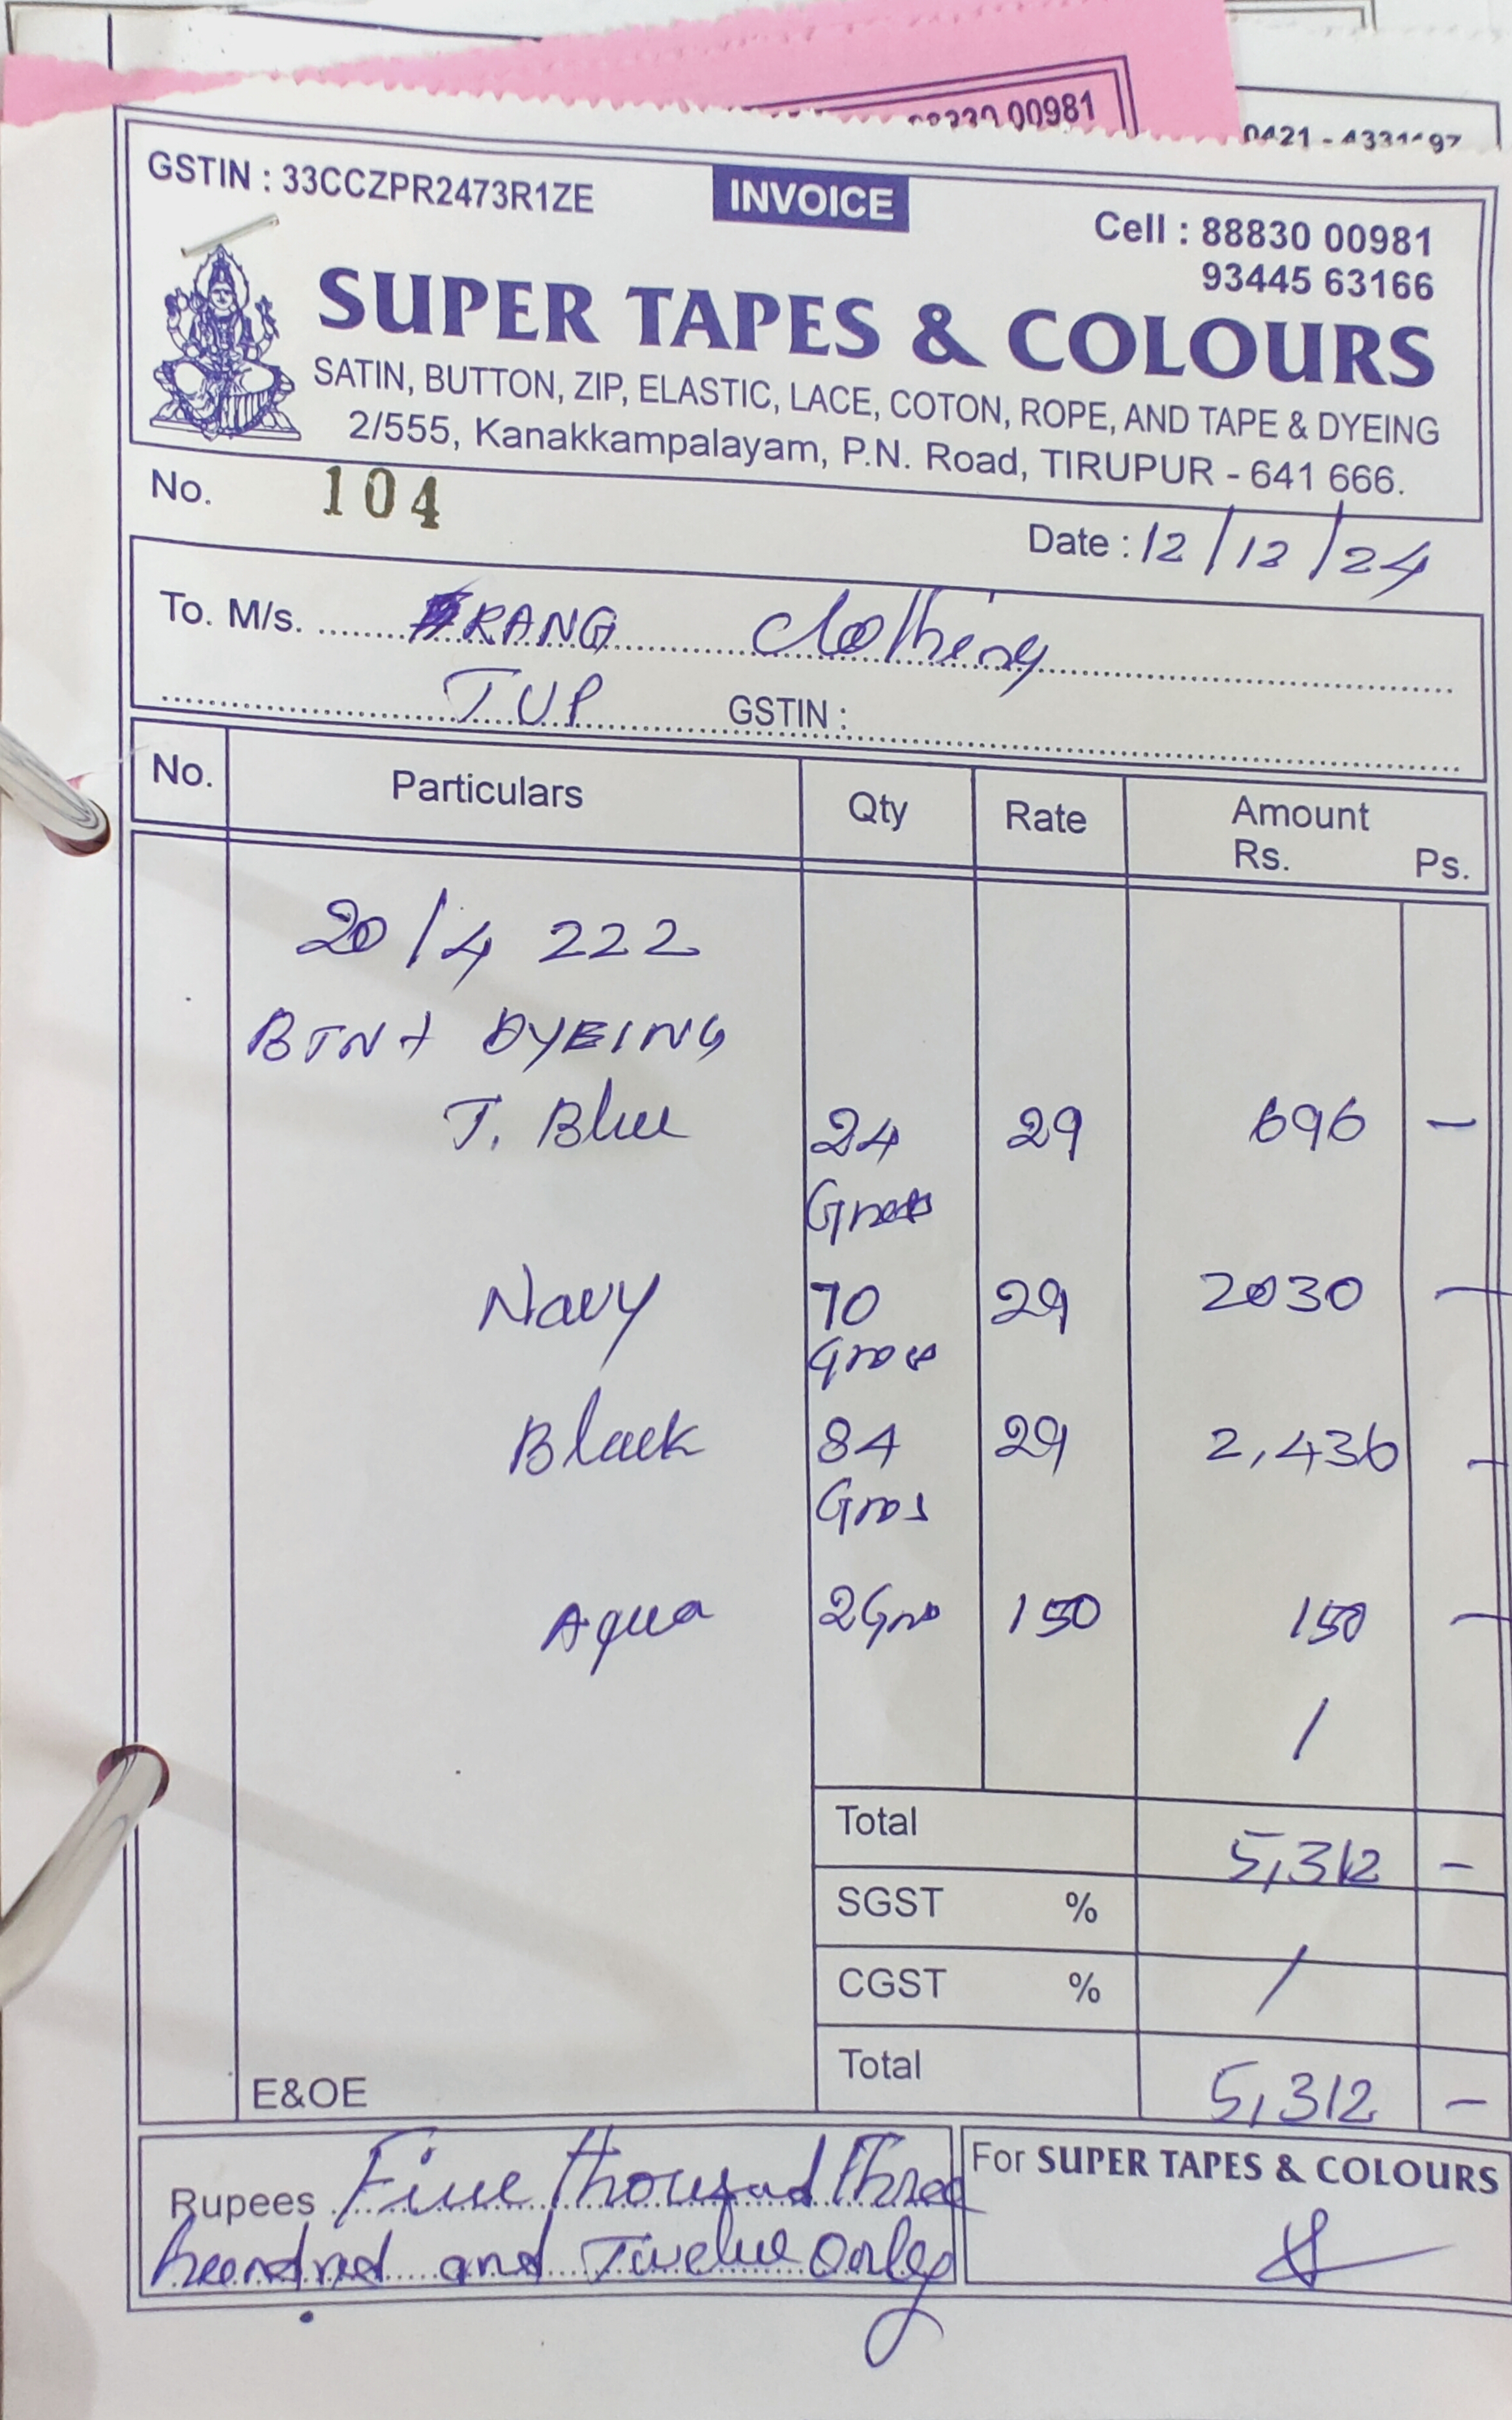 00981
GSTIN : 33CCZPR2473R1ZE
INVOICE
Cell : 88830 00981
93445 63166
SUPER TAPES & COLOURS
SATIN, BUTTON, ZIP, ELASTIC, LACE, COTON, ROPE, AND TAPE & DYEING
2/555, Kanakkampalayam, P.N. Road, TIRUPUR - 641 666.
No. 104
Date : 12/12/24
To. M/s. RANG Clothing
TUP GSTIN :
No. Particulars Qty Rate Amount
Rs. Ps.
20/4 222
BTN + DYEING
T. Blue 24 29 696 -
Gross
Navy 70 29 2030 -
Gross
Black 84 29 2,436 -
Gros
Aqua 2 Gros 150 150 -
/
Total 5,312 -
SGST %
CGST % /
Total 5,312 -
E&OE
Rupees Five thousand Three
hundred and Twelve Only
For SUPER TAPES & COLOURS